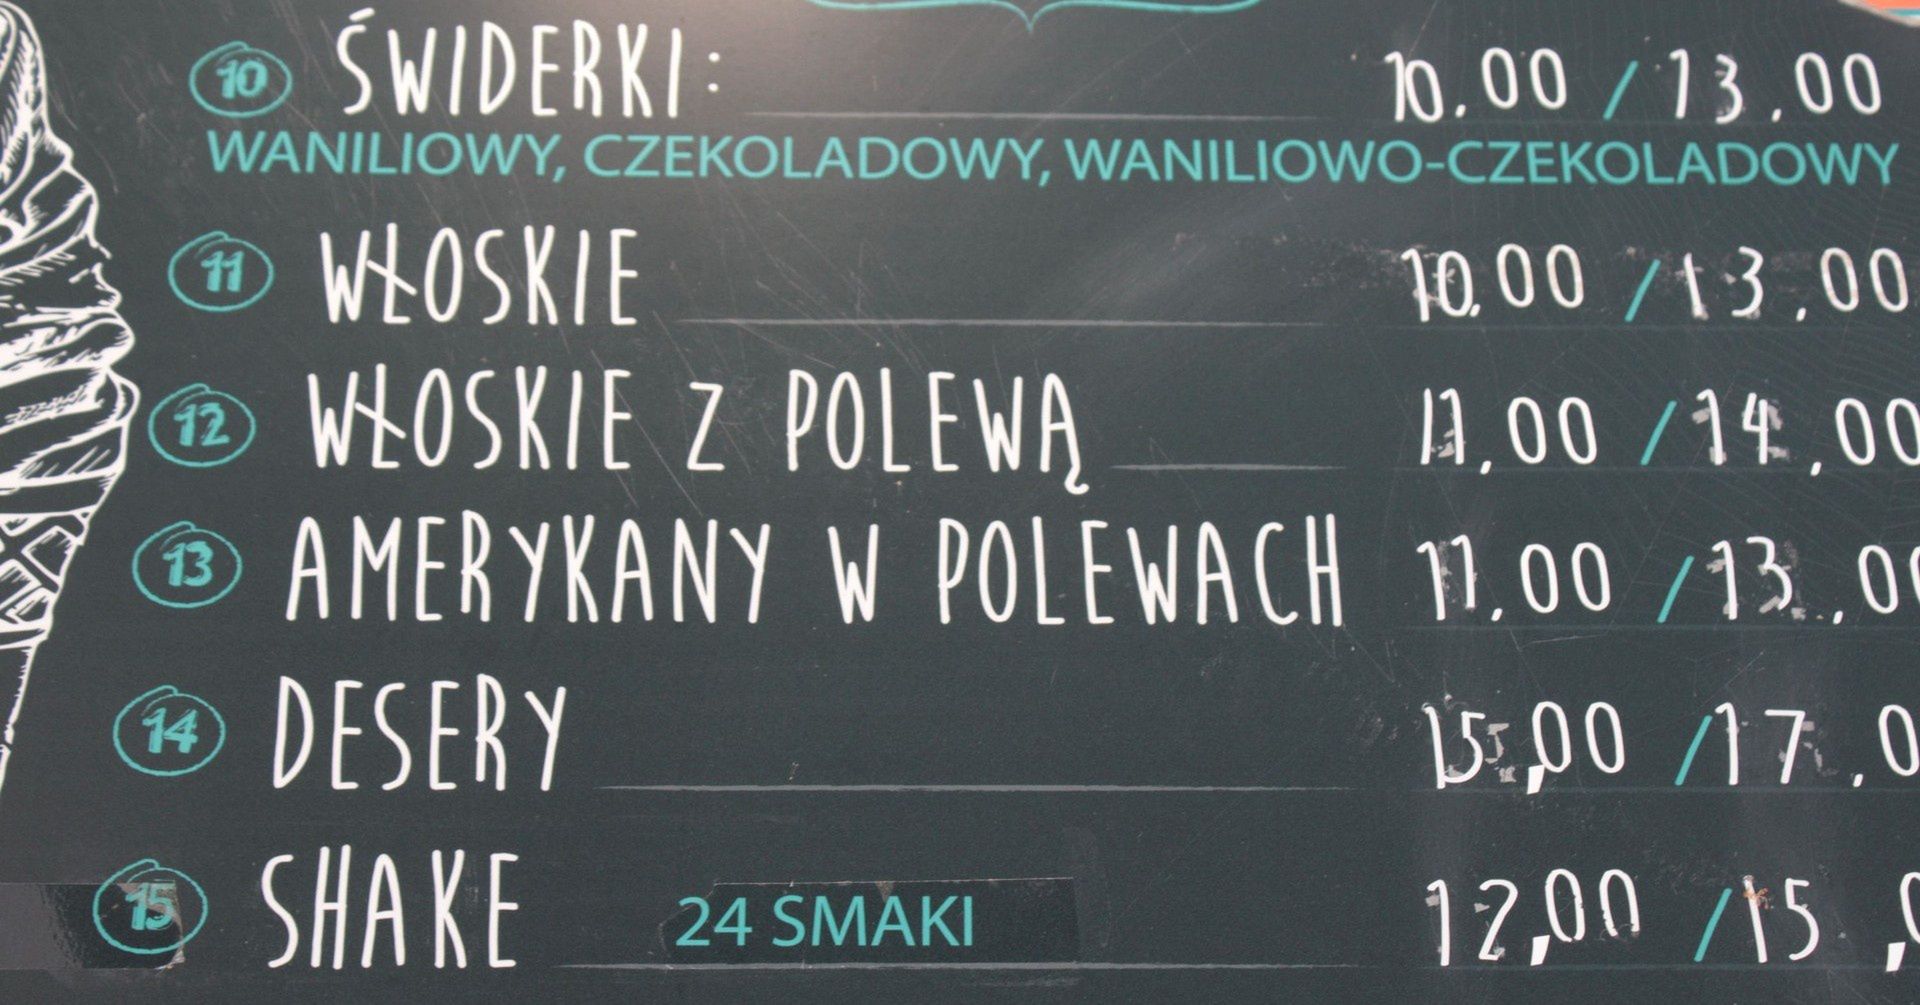 10 ŚWIDERKI: 10.00 / 13.00
WANILIOWY, CZEKOLADOWY, WANILIOWO-CZEKOLADOWY
11 WŁOSKIE 10.00 / 13.00
12 WŁOSKIE Z POLEWĄ 11.00 / 14.00
13 AMERYKANY W POLEWACH 11.00 / 13.00
14 DESERY 15,00 / 17.0
15 SHAKE 24 SMAKI 12,00 / 15,0